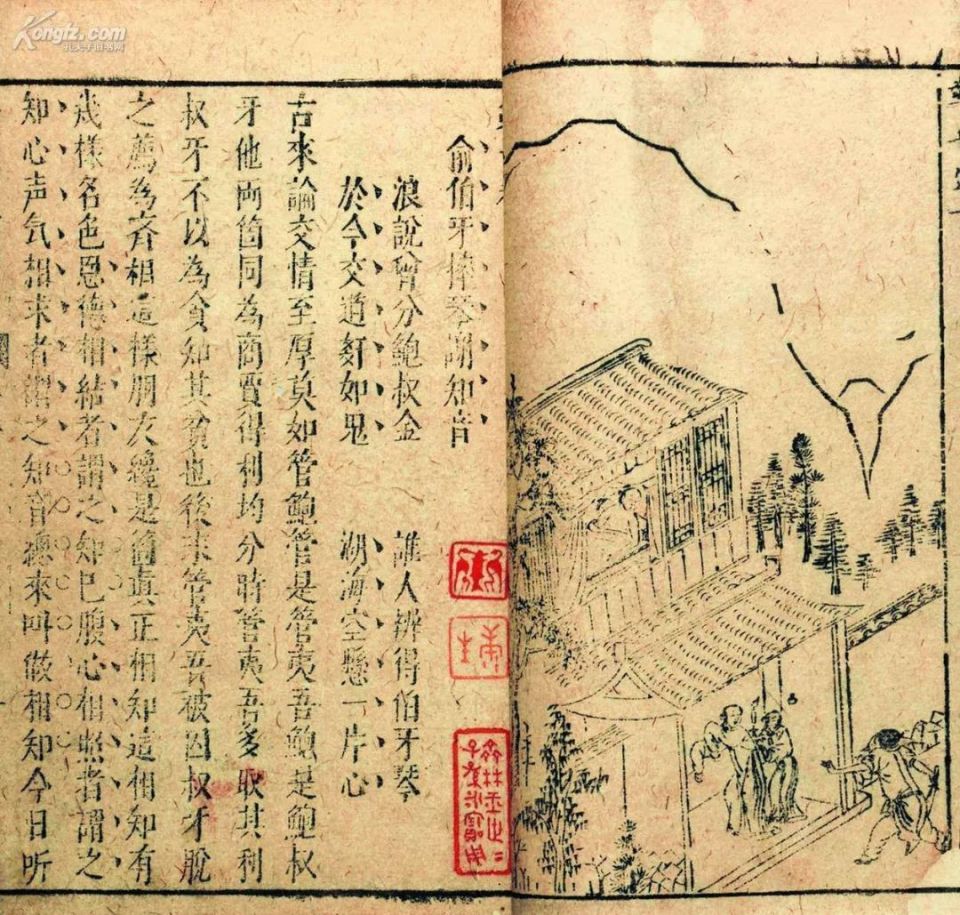 Kongfz.com
孔夫子旧书网
俞伯牙捧琴謝知音
浪說曾分鮑叔金 誰人辨得伯牙琴
於今交道奸如鬼 湖海空懸一片心
古來論交情至厚莫如管鮑管是管夷吾鮑是鮑叔
牙他兩箇同為商賈得利均分時管夷吾多取其利
叔牙不以為貪知其貧也後來管夷吾被囚叔牙脫
之薦為齊相這樣朋友纔是箇真正相知這相知有
幾樣名色恩德相結者謂之知己腹心相照者謂之
知心声气相求者謂之知音總來叫做相知今日听